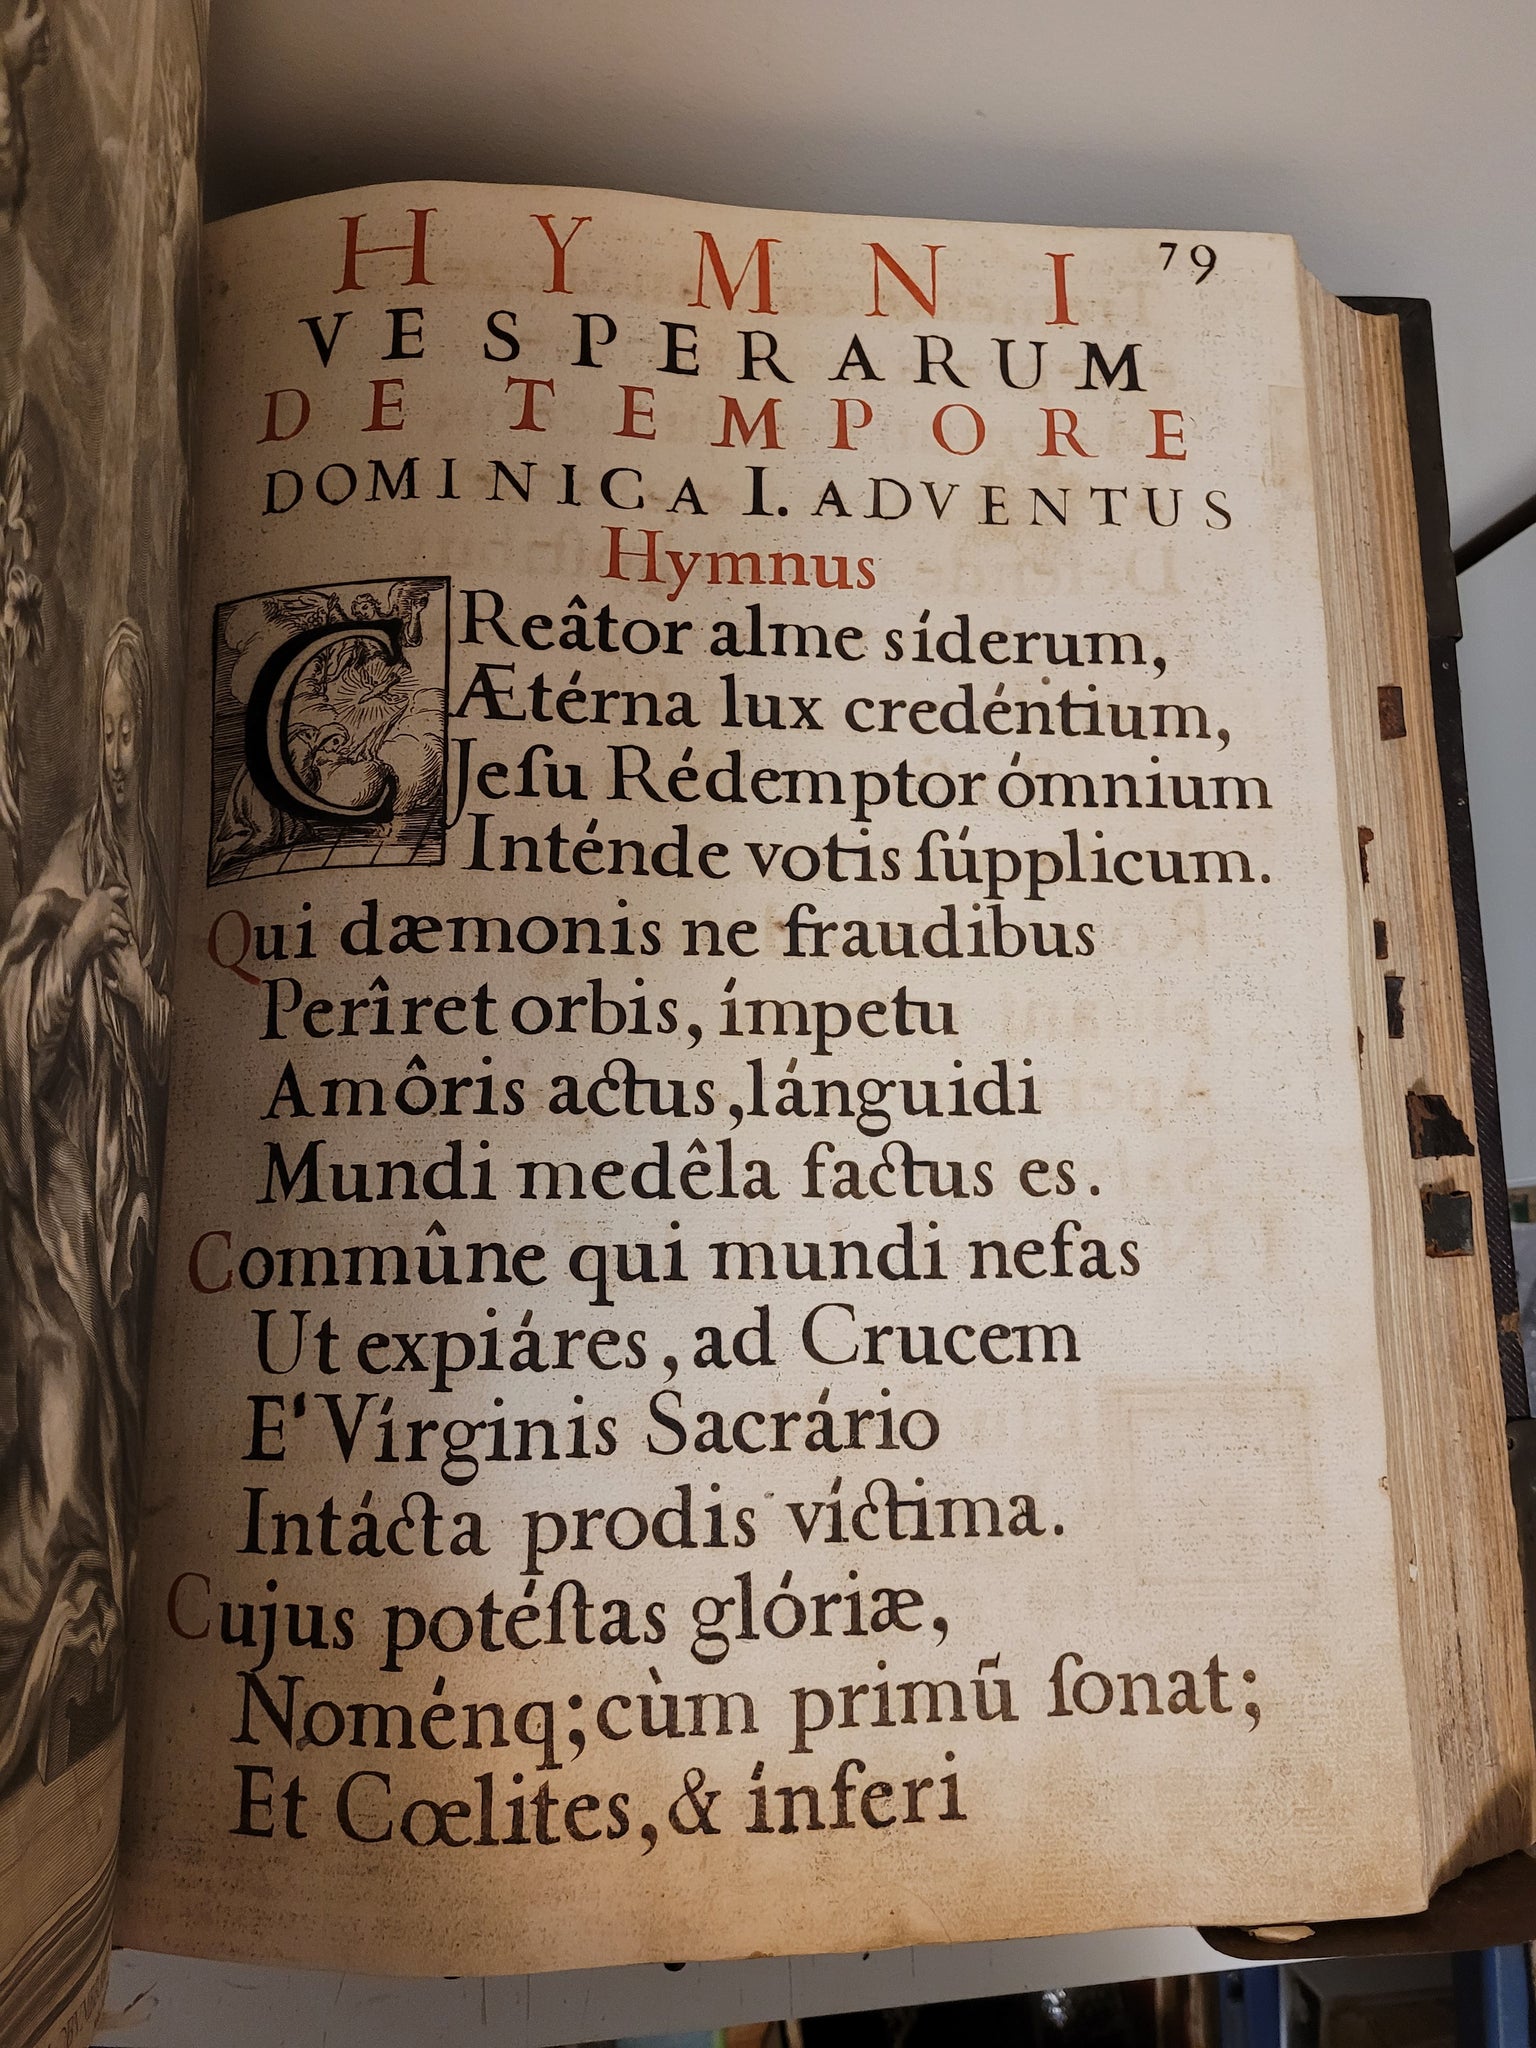 HYMNI 79
VESPERARUM
DE TEMPORE
DOMINICA I. ADVENTUS
Hymnus
CReâtor alme síderum,
Ætérna lux credéntium,
Jeſu Rédemptor ómnium
Inténde votis ſúpplicum.
Qui dæmonis ne fraudibus
Perîret orbis, ímpetu
Amôris actus, lánguidi
Mundi medêla factus es.
Commûne qui mundi nefas
Ut expiáres, ad Crucem
E' Vírginis Sacrário
Intácta prodis víctima.
Cujus potéſtas glóriæ,
Noménq; cùm primū ſonat;
Et Cœlites, & ínferi